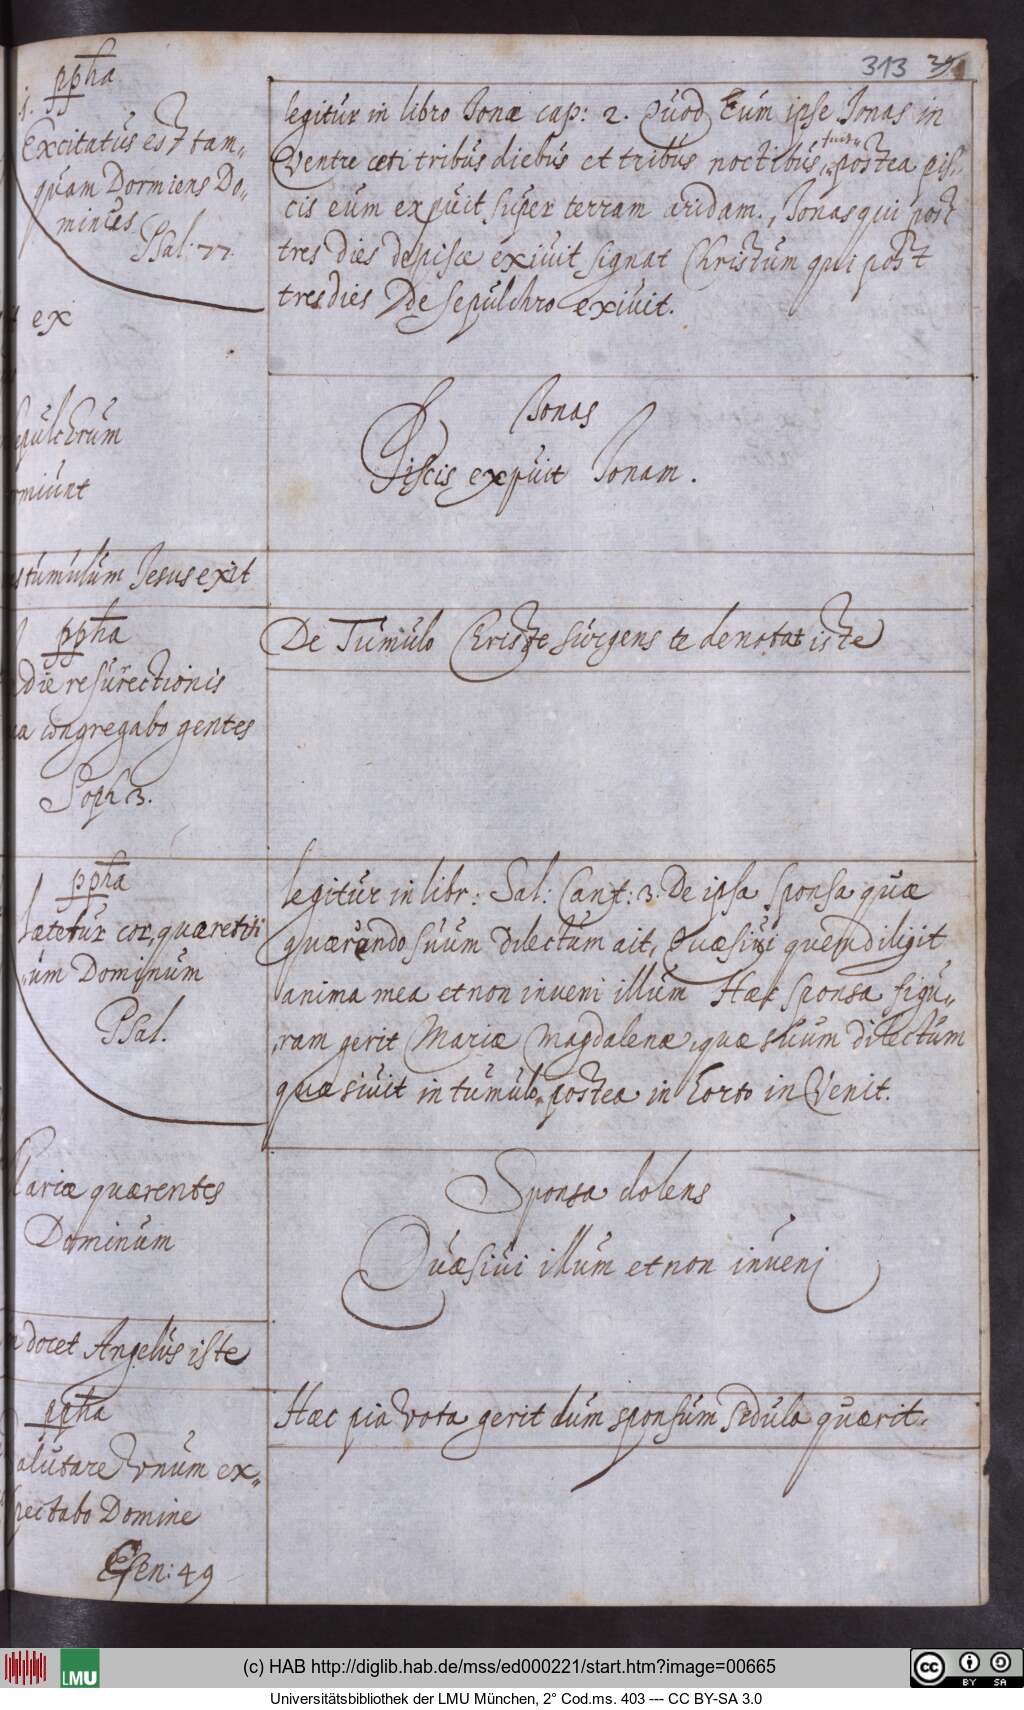 313
ppha
Excitatus est tam„
quam Dormiens Do„
minus.
Psal: 77.
ex
sepulchrum
tumulum Jesus exit
ppha
die resurrectionis
congregabo gentes
Soph 3.
ppha
lætetur cor, quæretiti
um Dominum
Psal.
Mariæ quærentes
Dominum
docet Angelus iste
ppha
salutare tuum ex„
pectabo Domine
Gen: 49
legitur in libro Jonæ cap: 2. Quod Cum ipse Jonas in
Ventre ceti tribus diebus et tribus noctibus, fuisset postea pis„
cis eum expuit super terram aridam., Jonas qui post
tres dies de pisce exiuit signat Christum qui post
tres dies De sepulchro exiuit.
Jonas
Piscis expuit Jonam.
De Tumulo Christe surgens te denotat iste
legitur in libr: Sal: Cant: 3. De ipsa sponsa quæ
quærendo suum dilectum ait, Quæsiui quem diligit
anima mea et non inveni illum Hæc sponsa figu„
ram gerit Mariæ Magdalenæ, quæ suum dilectum
quæsiuit in tumulo, postea in horto inVenit.
Sponsa dolens
Quæsiui illum et non inveni
Hæc pia vota gerit dum sponsum sedula quærit.
LMU
(c) HAB http://diglib.hab.de/mss/ed000221/start.htm?image=00665
cc BY SA
Universitätsbibliothek der LMU München, 2° Cod.ms. 403 --- CC BY-SA 3.0